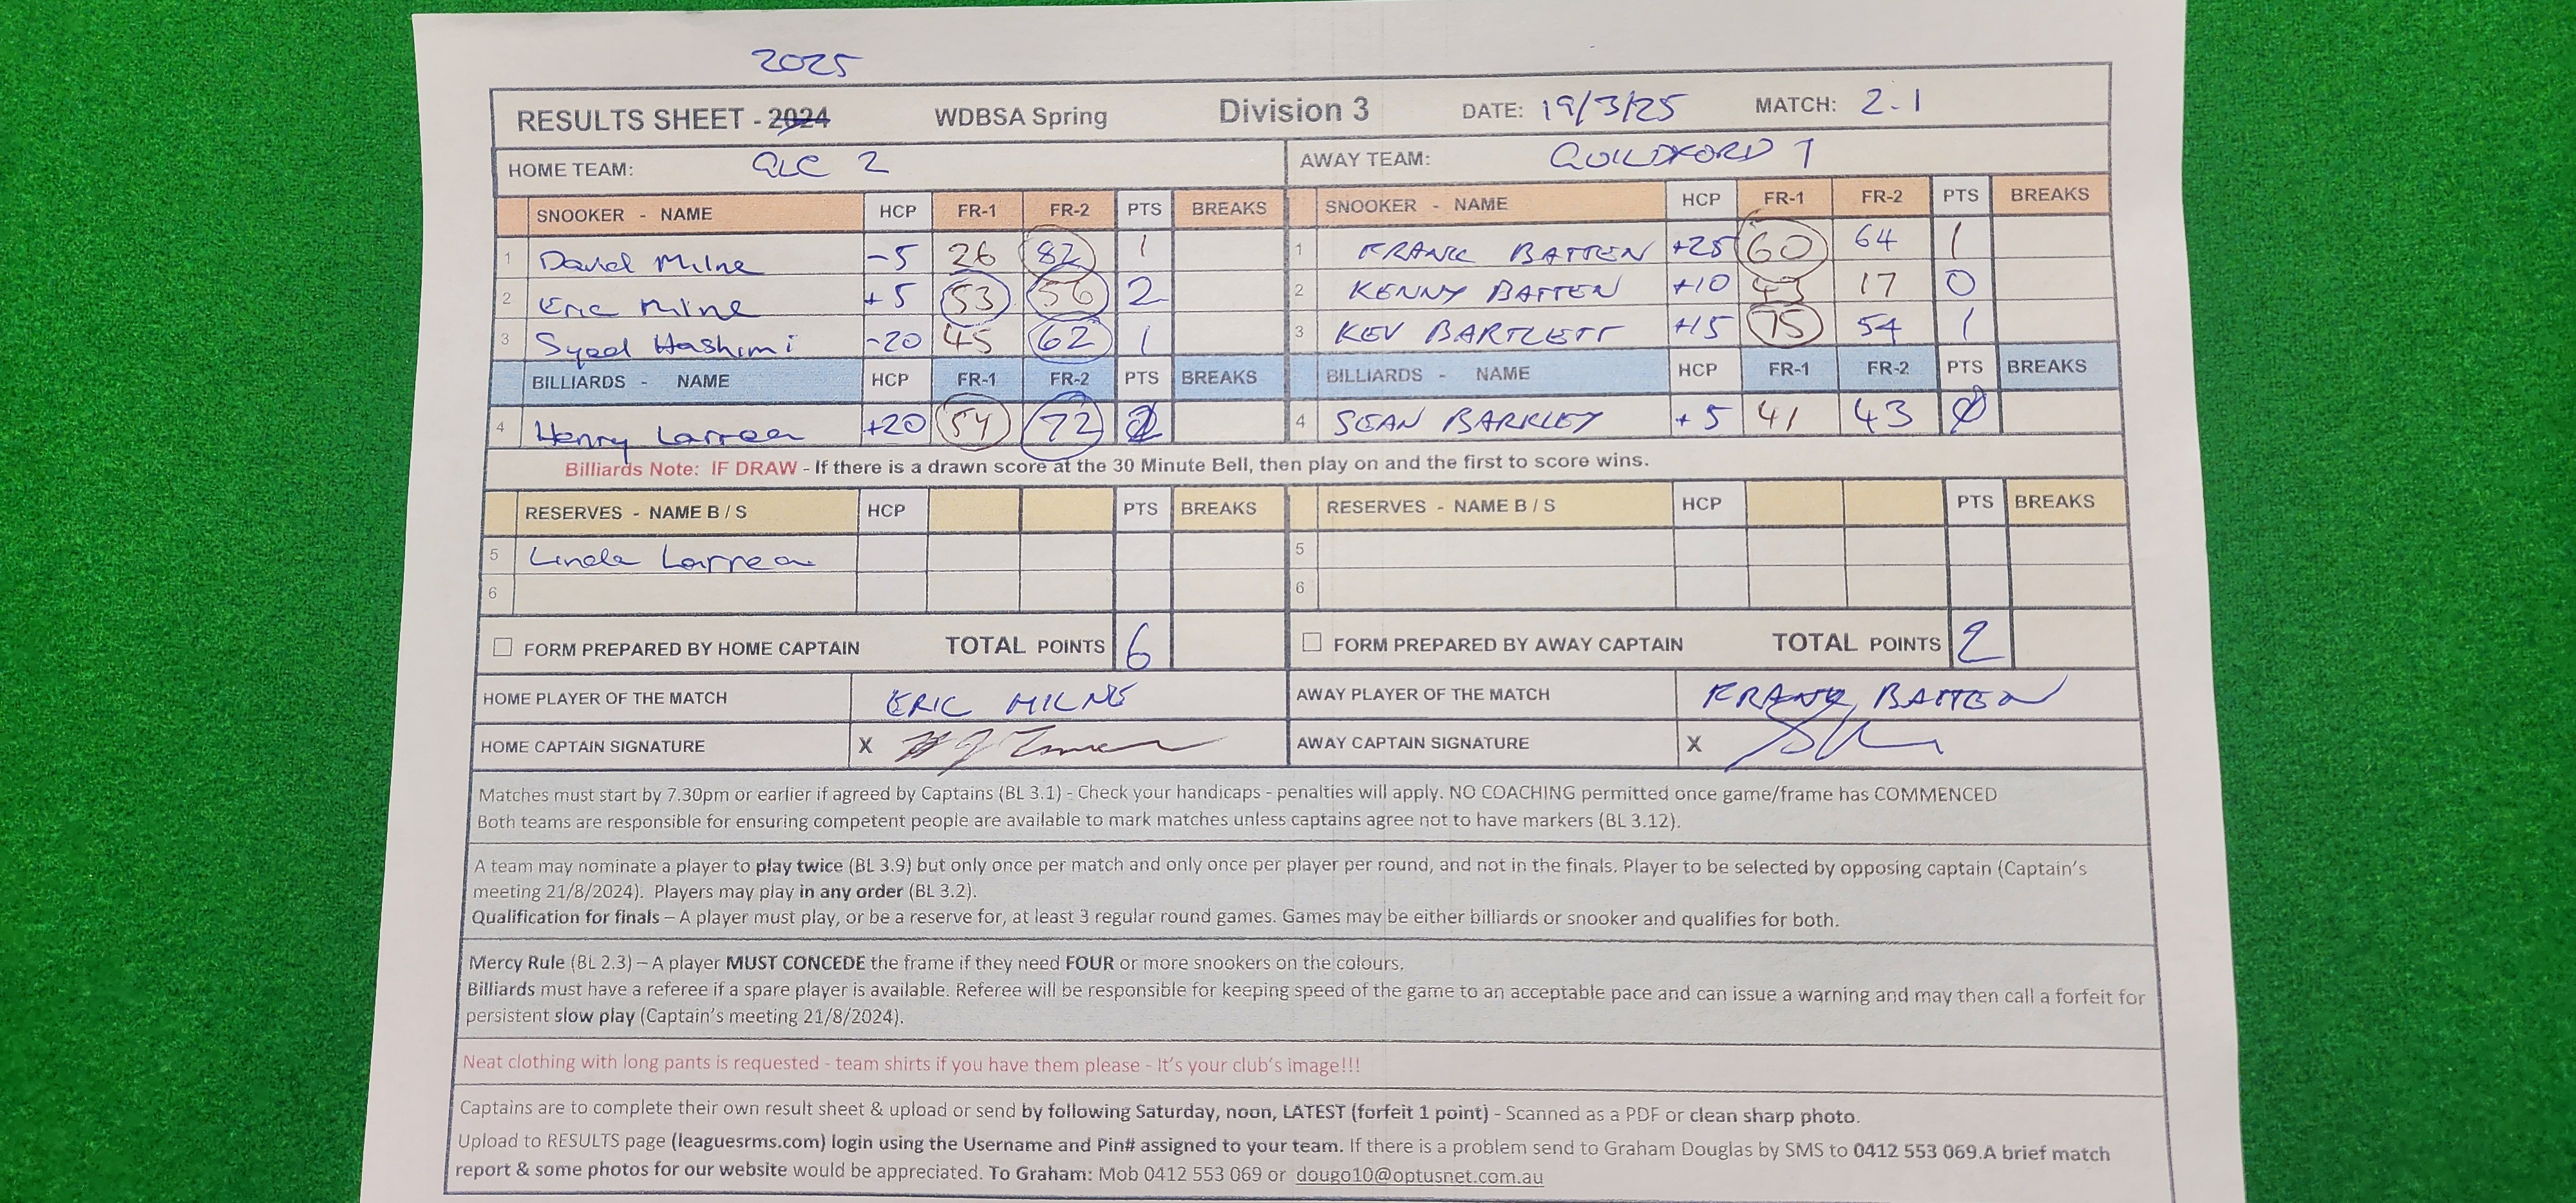 2025
RESULTS SHEET - 2024 WDBSA Spring Division 3 DATE: 19/3/25 MATCH: 2.1
HOME TEAM: QLC 2 AWAY TEAM: GUILDFORD 1
SNOOKER - NAME HCP FR-1 FR-2 PTS BREAKS SNOOKER - NAME HCP FR-1 FR-2 PTS BREAKS
1 David Milne -5 26 82 1 1 FRANK BATTEN +25 60 64 1
2 Eric Milne +5 53 56 2 2 KENNY BATTEN +10 43 17 0
3 Syed Hashimi -20 45 62 1 3 KEV BARTLETT +15 75 54 1
BILLIARDS - NAME HCP FR-1 FR-2 PTS BREAKS BILLIARDS - NAME HCP FR-1 FR-2 PTS BREAKS
4 Henry Larrea +20 54 72 2 4 SEAN BARKLEY +5 41 43 0
Billiards Note: IF DRAW - If there is a drawn score at the 30 Minute Bell, then play on and the first to score wins.
RESERVES - NAME B / S HCP PTS BREAKS RESERVES - NAME B / S HCP PTS BREAKS
5 Linda Larrea 5
6 6
FORM PREPARED BY HOME CAPTAIN TOTAL POINTS 6 FORM PREPARED BY AWAY CAPTAIN TOTAL POINTS 2
HOME PLAYER OF THE MATCH ERIC MILNE AWAY PLAYER OF THE MATCH FRANK BATTEN
HOME CAPTAIN SIGNATURE X AWAY CAPTAIN SIGNATURE X
Matches must start by 7.30pm or earlier if agreed by Captains (BL 3.1) - Check your handicaps - penalties will apply. NO COACHING permitted once game/frame has COMMENCED
Both teams are responsible for ensuring competent people are available to mark matches unless captains agree not to have markers (BL 3.12).
A team may nominate a player to play twice (BL 3.9) but only once per match and only once per player per round, and not in the finals. Player to be selected by opposing captain (Captain's
meeting 21/8/2024). Players may play in any order (BL 3.2).
Qualification for finals – A player must play, or be a reserve for, at least 3 regular round games. Games may be either billiards or snooker and qualifies for both.
Mercy Rule (BL 2.3) – A player MUST CONCEDE the frame if they need FOUR or more snookers on the colours.
Billiards must have a referee if a spare player is available. Referee will be responsible for keeping speed of the game to an acceptable pace and can issue a warning and may then call a forfeit for
persistent slow play (Captain's meeting 21/8/2024).
Neat clothing with long pants is requested - team shirts if you have them please - It's your club's image!!!
Captains are to complete their own result sheet & upload or send by following Saturday, noon, LATEST (forfeit 1 point) - Scanned as a PDF or clean sharp photo.
Upload to RESULTS page (leaguesrms.com) login using the Username and Pin# assigned to your team. If there is a problem send to Graham Douglas by SMS to 0412 553 069.A brief match
report & some photos for our website would be appreciated. To Graham: Mob 0412 553 069 or dougo10@optusnet.com.au